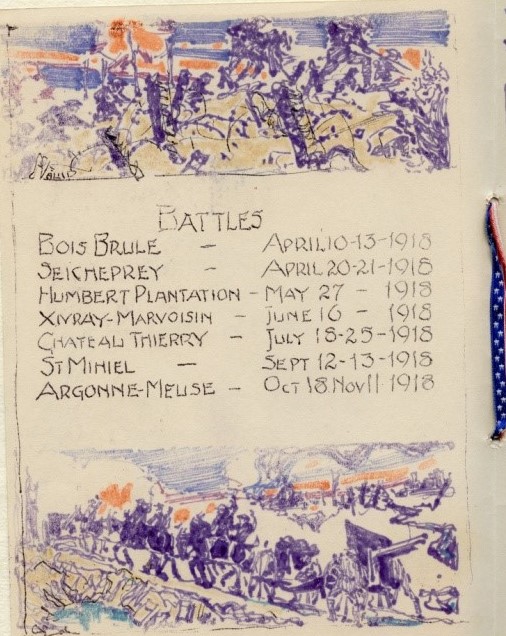 BATTLES
BOIS BRULE - APRIL 10-13-1918
SEICHEPREY - APRIL 20-21-1918
HUMBERT PLANTATION - MAY 27 - 1918
XIVRAY-MARVOISIN - JUNE 16 - 1918
CHATEAU THIERRY - JULY 18-25-1918
ST MIHIEL - SEPT 12-13-1918
ARGONNE-MEUSE - OCT 18 NOV 11 1918